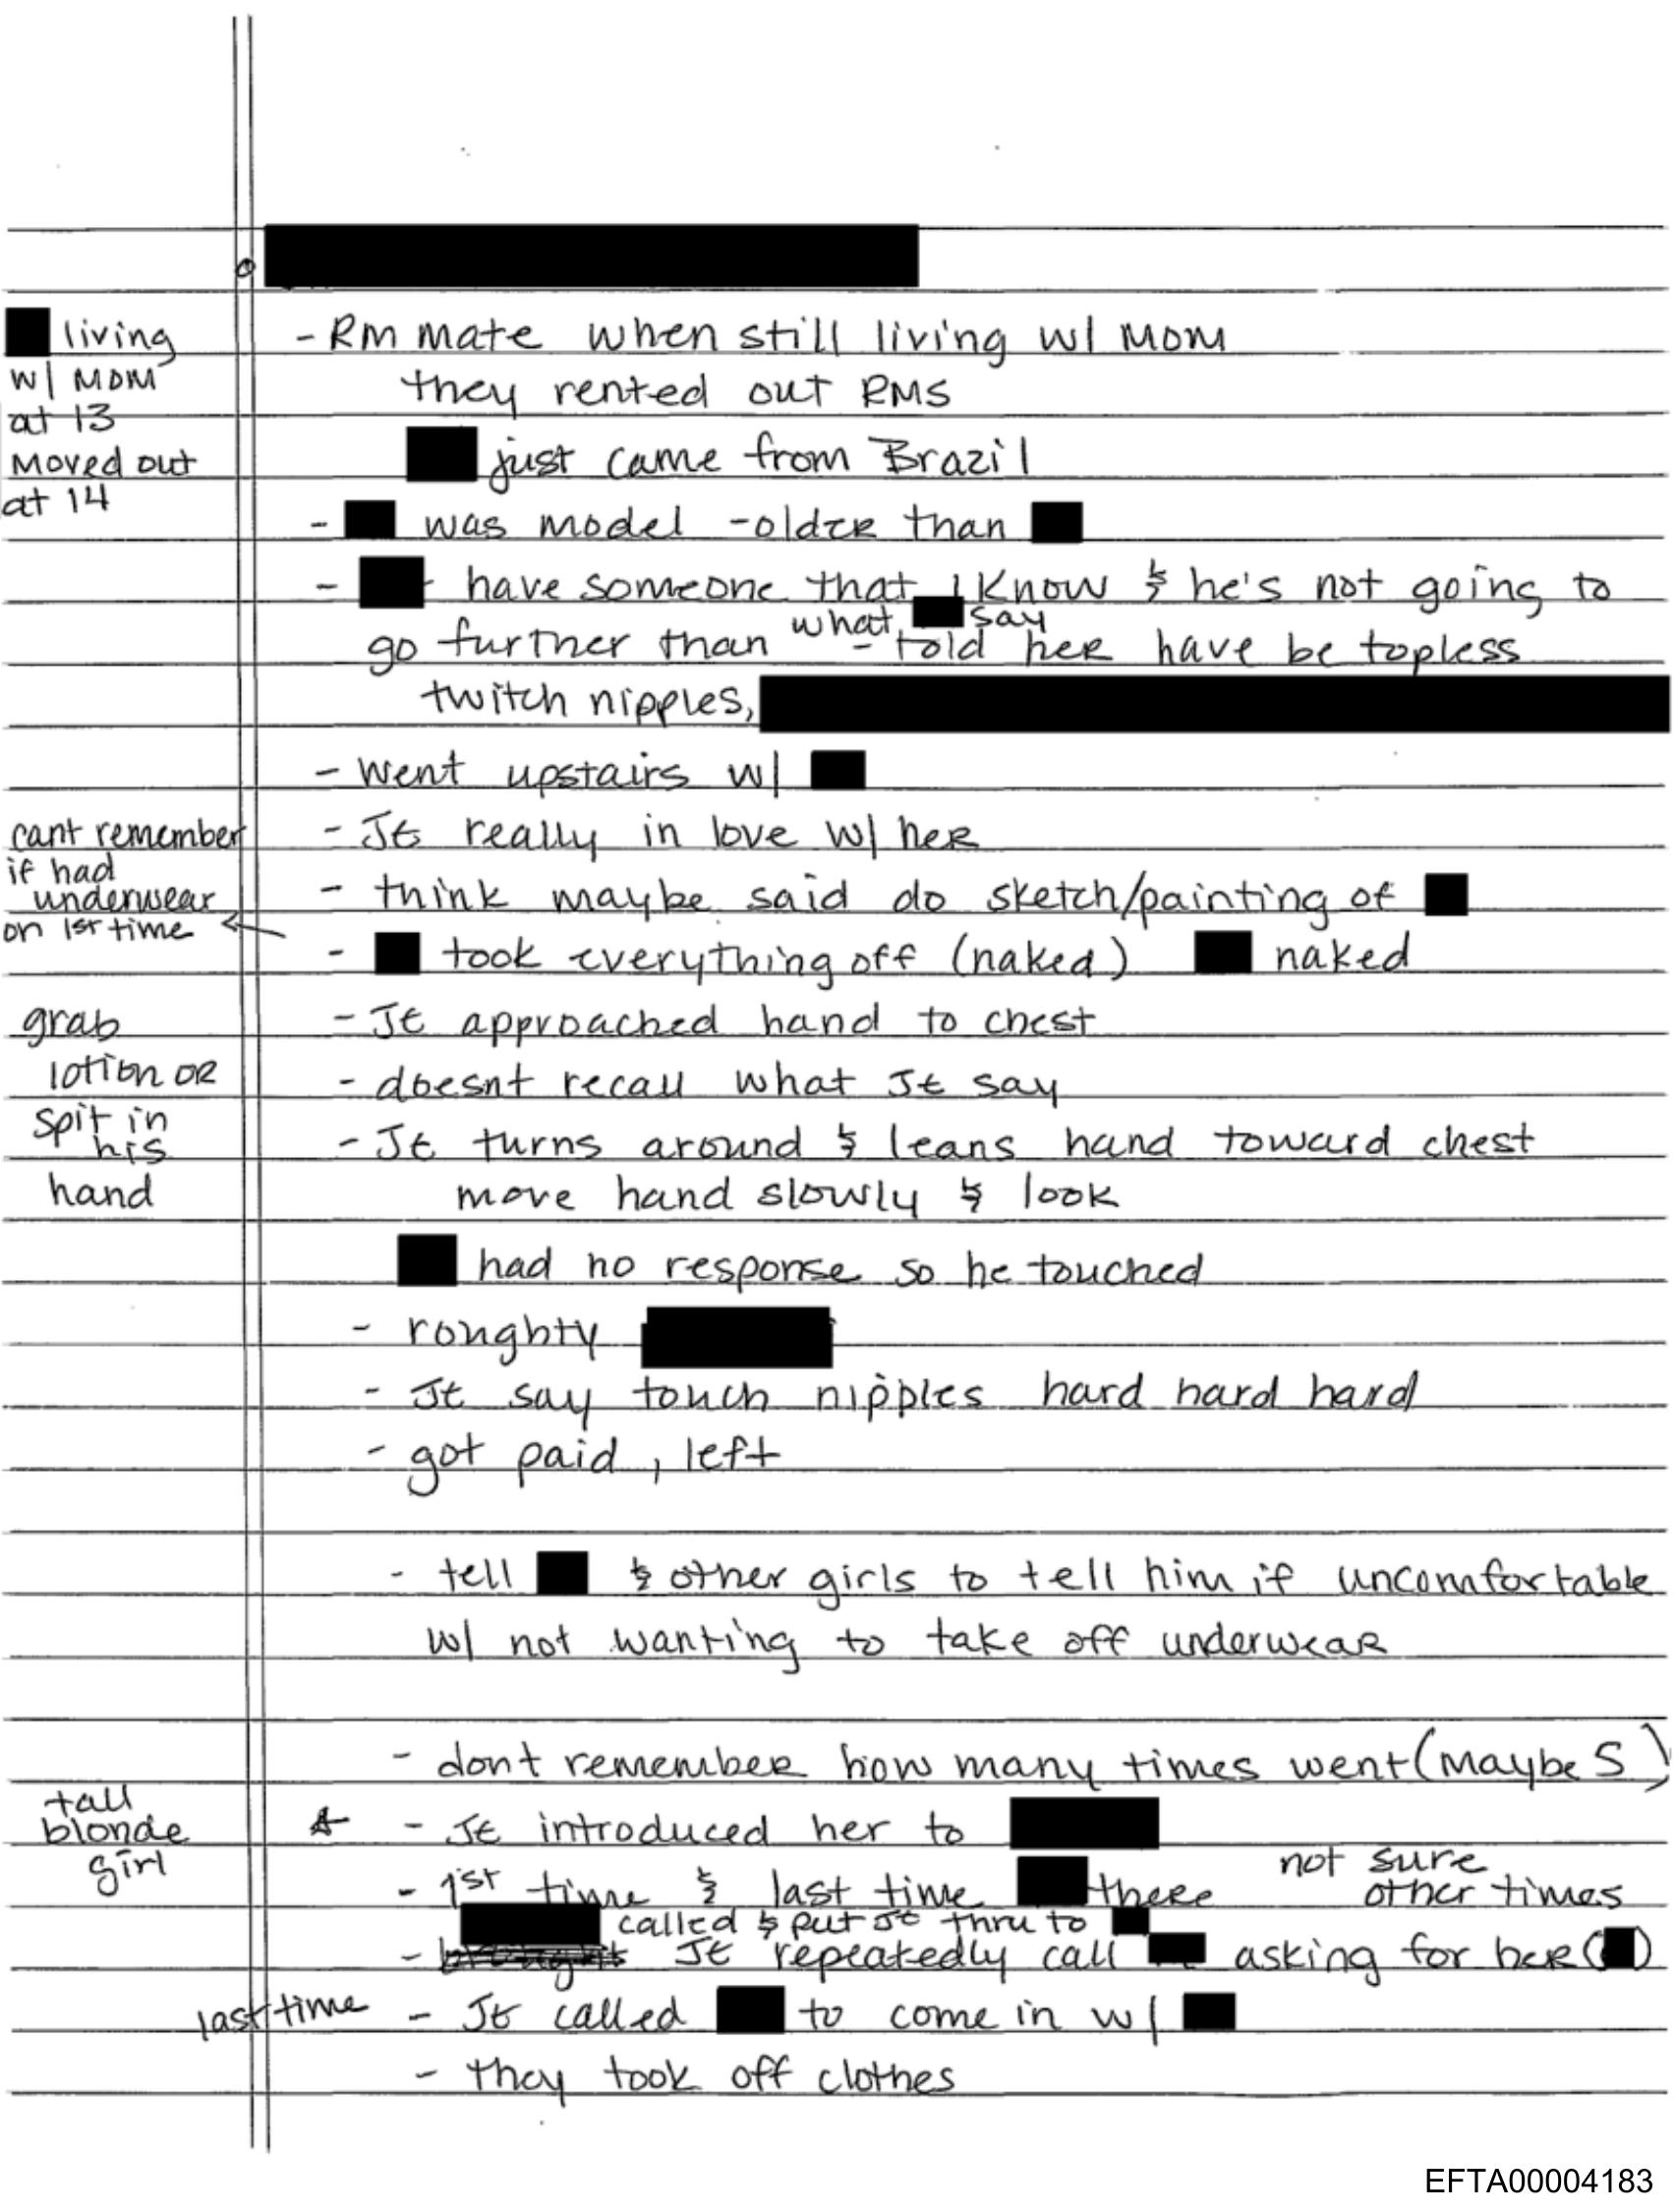 living
w/ MOM
at 13
Moved out
at 14
- Rm mate when still living w/ Mom
they rented out RMS
just came from Brazil
- was model - older than
- have someone that I know & he's not going to
go further than what say - told her have be topless
twitch nipples,
- went upstairs w/
cant remember
if had
underwear
on 1st time
- JE really in love w/ her
- think maybe said do sketch/painting of
- took everything off (naked) naked
grab
lotion or
spit in
his
hand
- JE approached hand to chest
- doesnt recall what JE say
- JE turns around & leans hand toward chest
move hand slowly & look
had no response so he touched
-
- JE say touch nipples hard hard hard
- got paid, left
- tell & other girls to tell him if uncomfortable
w/ not wanting to take off underwear
- dont remember how many times went (Maybe 5)
tall
blonde
girl
- JE introduced her to
- 1st time & last time there not sure
other times
called & put JE thru to
- JE repeatedly call asking for her ( )
last time - JE called to come in w/
- they took off clothes
EFTA00004183